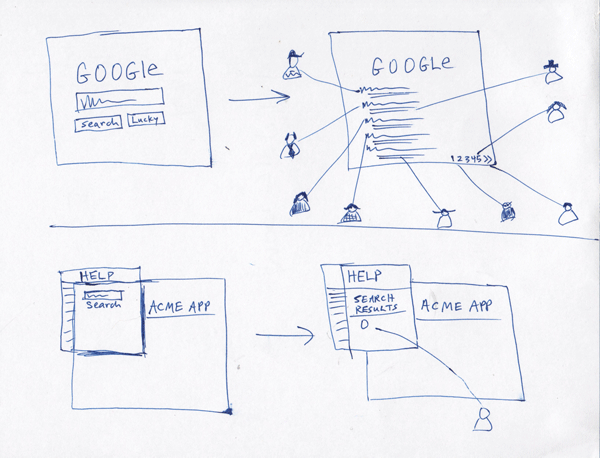 GOOGle
search
Lucky
GOOGLe
12345>>
HELP
Search
ACME APP
HELP
SEARCH
RESULTS
0
ACME APP